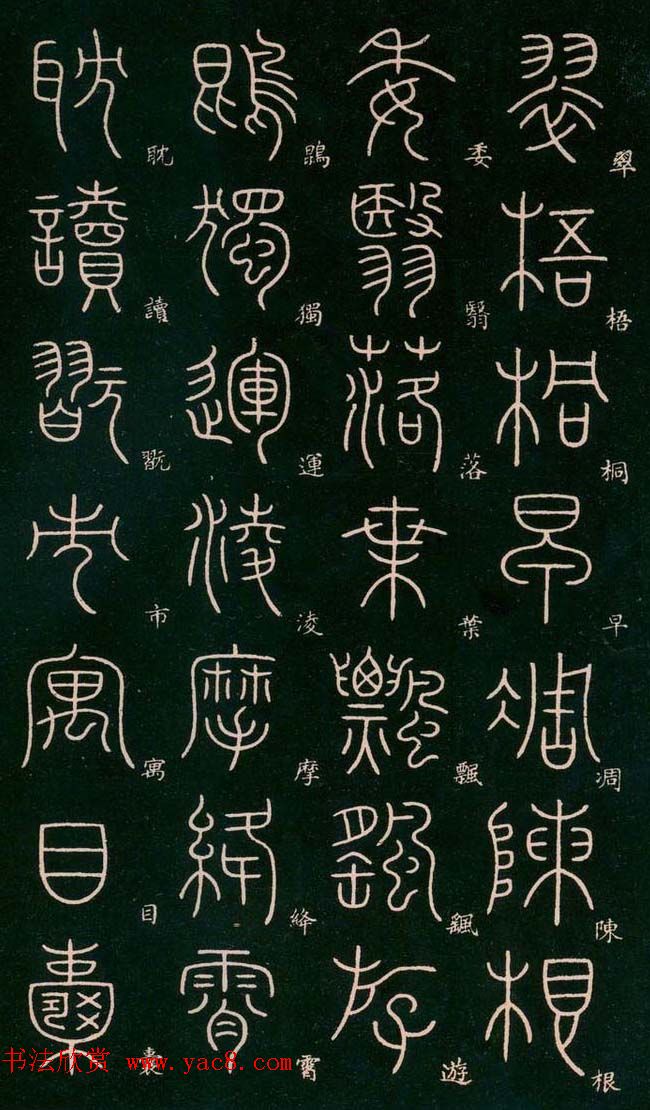 翠梧桐早凋陳根
委翳落葉飄颻遊
鵾獨運淩摩絳霄
耽讀翫市寓目囊
书法欣赏 www.yac8.com